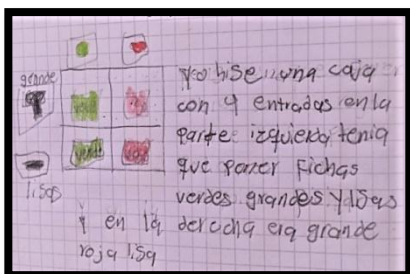 grande
verde
verde
lisas
yo hise una caja
con 4 entradas en la
parte izquierda tenia
que poner fichas
verdes grandes y lisas
y en la derecha era grande
roja lisa